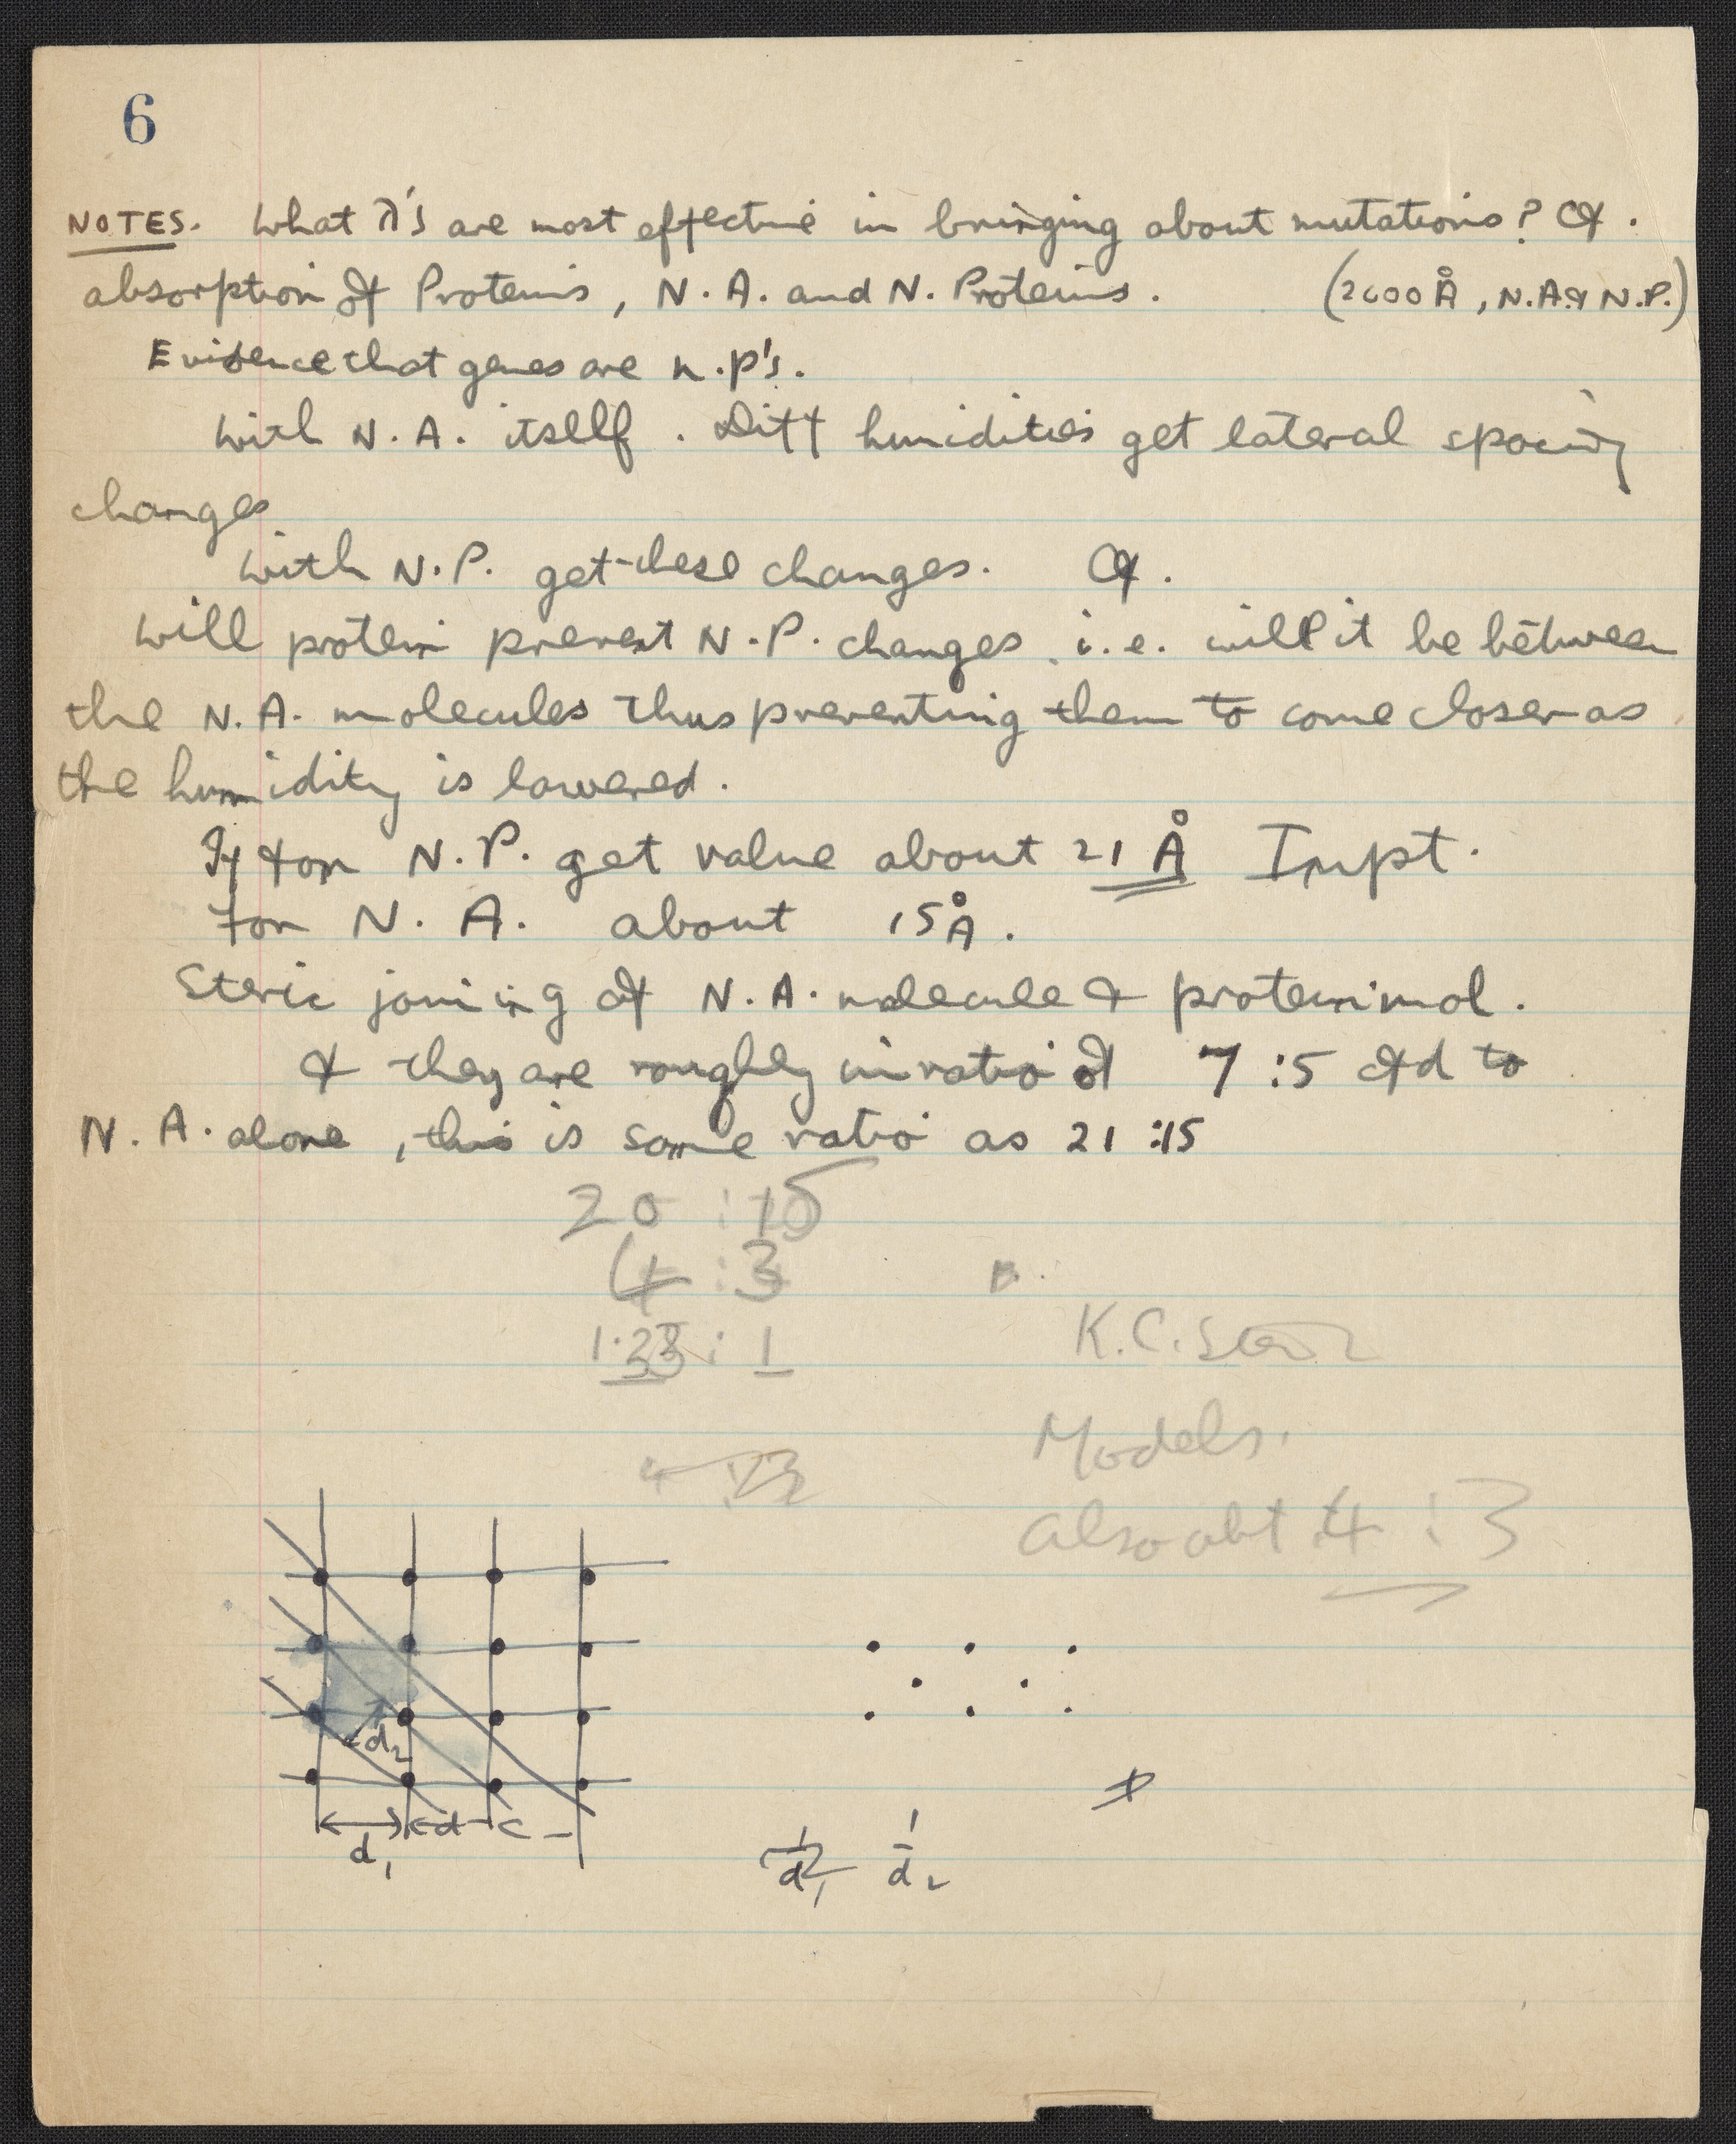 6
NOTES. What λ's are most effective in bringing about mutations? Cf.
absorption of Proteins, N.A. and N. Proteins. (2600 Å, N.A. & N.P.)
Evidence that genes are n.p's.
With N.A. itself. Diff humidities get lateral spacing
changes
With N.P. get these changes. Cf.
Will protein prevent N.P. changes i.e. will it be between
the N.A. molecules thus preventing them to come closer as
the humidity is lowered.
If for N.P. get value about 21 Å Impt.
for N.A. about 15 Å.
Steric joining of N.A. molecule & protein mol.
& they are roughly in ratio of 7:5 cfd to
N.A. alone, this is same ratio as 21:15
20 : 15
4 : 3
B.
1.33 : 1
K.C. Stern
Models.
Also abt 4 : 3
d₂
d₁ d
1/d₁ 1/d₂